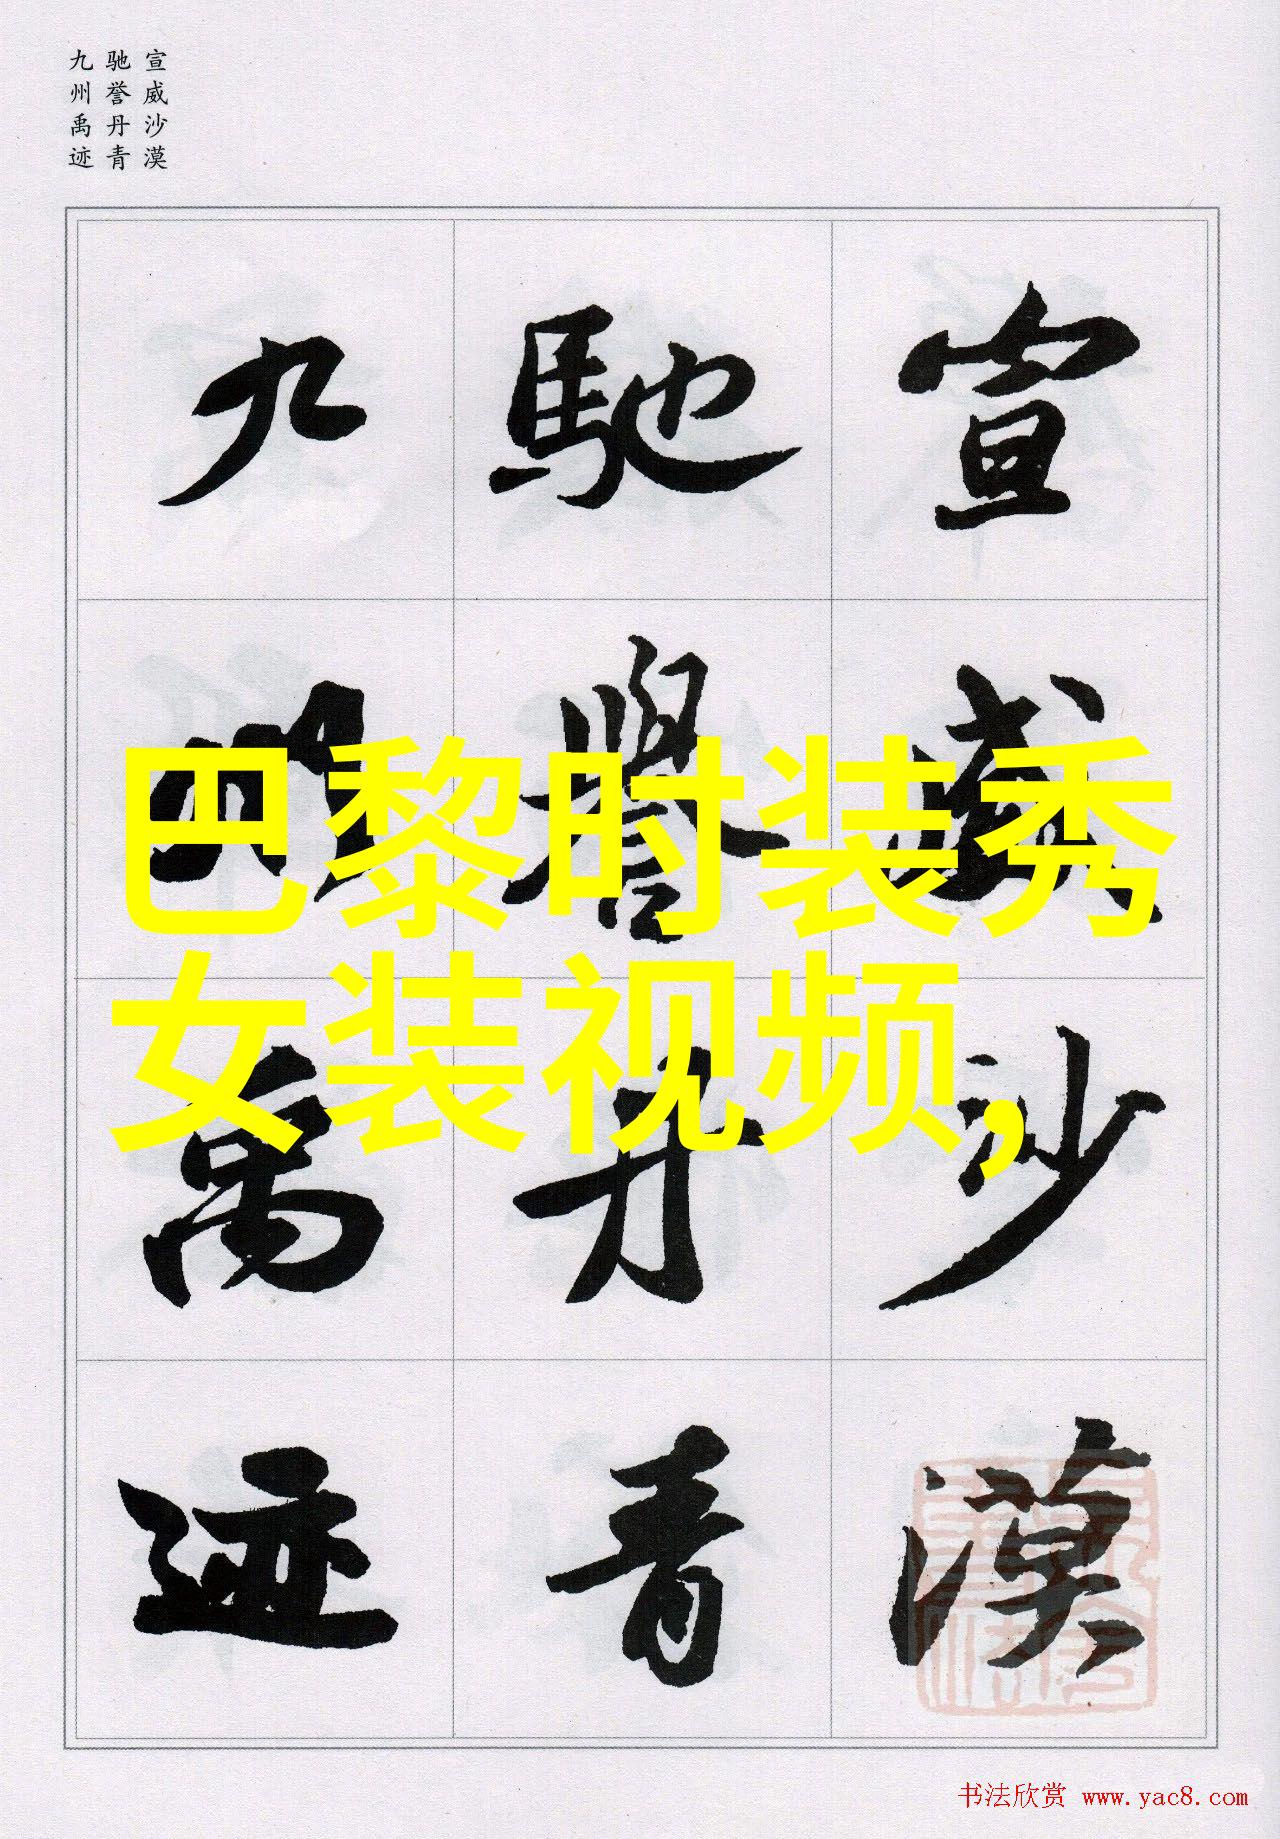 宣威沙漠
驰誉丹青
九州禹迹
宣威沙漠
馳譽丹青
九州禹迹
巴黎时装秀
女装视频,
书法欣赏 www.yac8.com